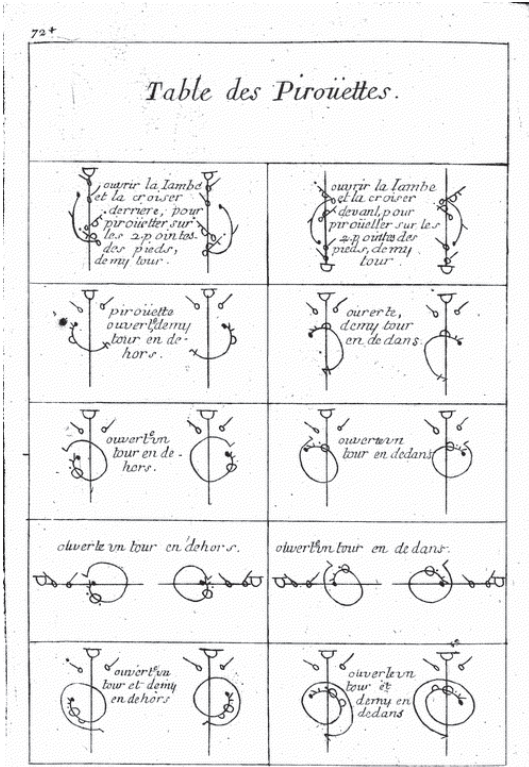 72+
Table des Piroüettes.
ouvrir la Iambe
et la croiser
derriere, pour
piroüetter sur
les 2 pointes
des pieds,
demy tour.
ouvrir la Iambe
et la croiser
devant, pour
piroüetter sur les
2 pointes des
pieds, demy
tour.
piroüette
ouverte demy
tour en de-
hors.
ouverte,
demy tour
en dedans.
ouverte vn
tour en de-
hors.
ouverte vn
tour en dedans
ouverte vn tour en dehors.
ouverte vn tour en dedans.
ouverte vn
tour et demy
en dehors
ouverte vn
tour et
demy en
dedans